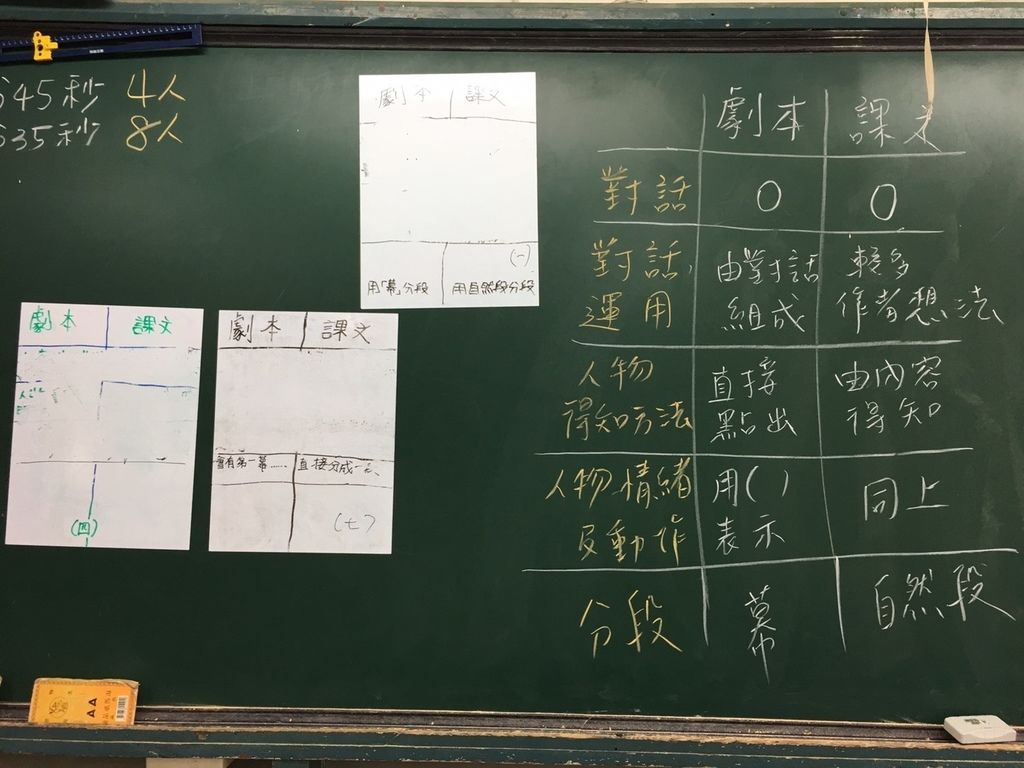 45秒 4人
35秒 8人
劇本 課文
用「幕」分段 用自然段分段
(一)
劇本 課文
(四)
劇本 課文
會有第一幕…… 直接分成一、
(七)
劇本 課文
對話 O O
對話運用 由對話組成 較多作者想法
人物得知方法 直接點出 由內容得知
人物情緒及動作 用( )表示 同上
分段 幕 自然段
AA